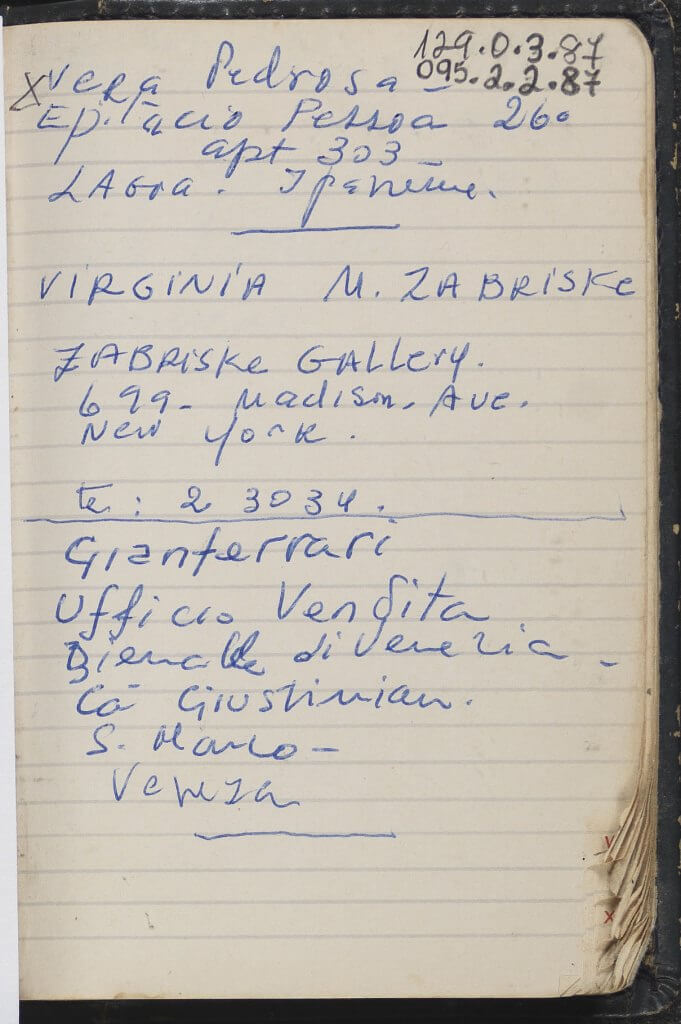 129.0.3.87
095.2.2.87
X Vera Pedrosa -
Epitacio Pessoa 260
apt 303
LAGOA. Ipanema.
VIRGINIA M. ZABRISKE
ZABRISKE GALLERY.
699- Madison. Ave.
New York.
te: 2 3034.
Gianferrari
Ufficio Vendita
Biennale di Venezia -
Cà Giustinian.
S. Marco -
Veneza
V
X